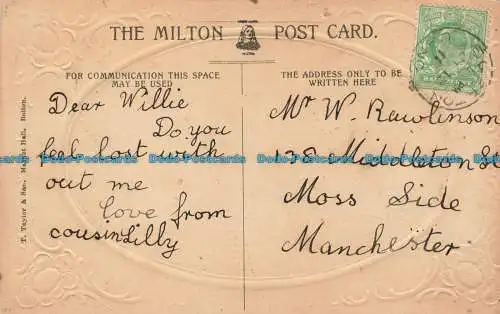 THE MILTON POST CARD.
FOR COMMUNICATION THIS SPACE
MAY BE USED
THE ADDRESS ONLY TO BE
WRITTEN HERE
Dear Willie
Do you
feel lost with
out me
love from
cousin Lilly
Mr W. Rawlinson
138 Middleton St
Moss Side
Manchester
T. Taylor & Son, Market Hall, Bolton.